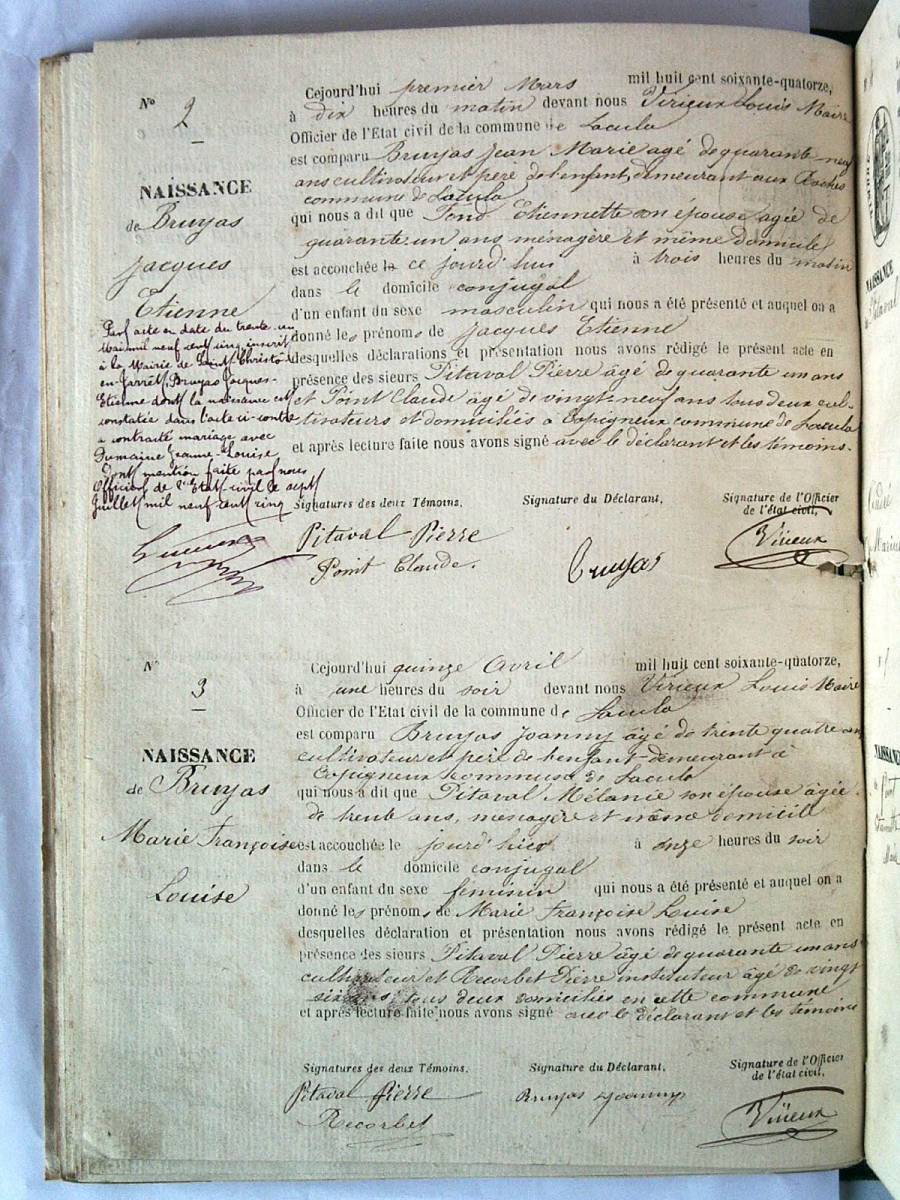 N° 2
NAISSANCE
de Bruyas
Jacques
Etienne
Par acte en date du trente-un
Mai mil neuf cent cinq inscrit
à la Mairie de Saint Christo
en-Jarret, Bruyas Jacques-
Etienne dont la naissance est
constatée dans l'acte ci-contre
a contracté mariage avec
Dumaine Jeanne-Louise
dont mention faite par nous
Officier de l'Etat civil le sept
Juillet mil neuf cent cinq
Cejourd'hui premier Mars mil huit cent soixante-quatorze,
à dix heures du matin devant nous Virieux Louis Maire
Officier de l'Etat civil de la commune de Lacula
est comparu Bruyas Jean Marie agé de quarante-neuf
ans cultivateur et père de l'enfant, demeurant aux Roches
commune de Lacula
qui nous a dit que Fond Etiennette son épouse agée de
quarante un ans ménagère et même domicile
est accouchée le ce jourd'hui à trois heures du matin
dans le domicile conjugal
d'un enfant du sexe masculin qui nous a été présenté et auquel on a
donné les prénoms de Jacques Etienne
desquelles déclarations et présentation nous avons rédigé le présent acte en
présence des sieurs Pitaval Pierre âgé de quarante un ans
et Point Claude âgé de vingt-neuf ans tous deux cul-
tivateurs et domiciliés à Espigneux commune de Lacula
et après lecture faite nous avons signé avec le déclarant et les témoins.
Signatures des deux Témoins. Signature du Déclarant, Signature de l'Officier
de l'état civil,
Pitaval Pierre Bruyas Virieux
Point Claude.
N° 3
NAISSANCE
de Bruyas
Marie Françoise
Louise
Cejourd'hui quinze Avril mil huit cent soixante-quatorze,
à une heures du soir devant nous Virieux Louis Maire
Officier de l'Etat civil de la commune de Lacula
est comparu Bruyas Joanny âgé de trente quatre ans
cultivateur et père de l'enfant demeurant à
Espigneux commune de Lacula
qui nous a dit que Pitaval Mélanie son épouse âgée
de trente ans, ménagère et même domicile
est accouchée le jourd'hier à onze heures du soir
dans le domicile conjugal
d'un enfant du sexe féminin qui nous a été présenté et auquel on a
donné les prénoms de Marie Françoise Louise
desquelles déclaration et présentation nous avons rédigé le présent acte en
présence des sieurs Pitaval Pierre âgé de quarante un ans
cultivateur et Recorbet Pierre instituteur âgé de vingt
six ans, tous deux domiciliés en cette commune
et après lecture faite nous avons signé avec le déclarant et les témoins
Signatures des deux Témoins. Signature du Déclarant, Signature de l'Officier
de l'état civil,
Pitaval Pierre Bruyas Joanny Virieux
Recorbet